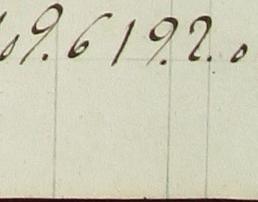 09. 6 19. 2. 0